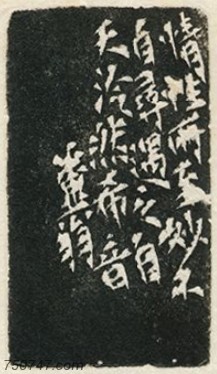 情性所至妙不
自尋遇之自
天泠然希音
翁
750747.com